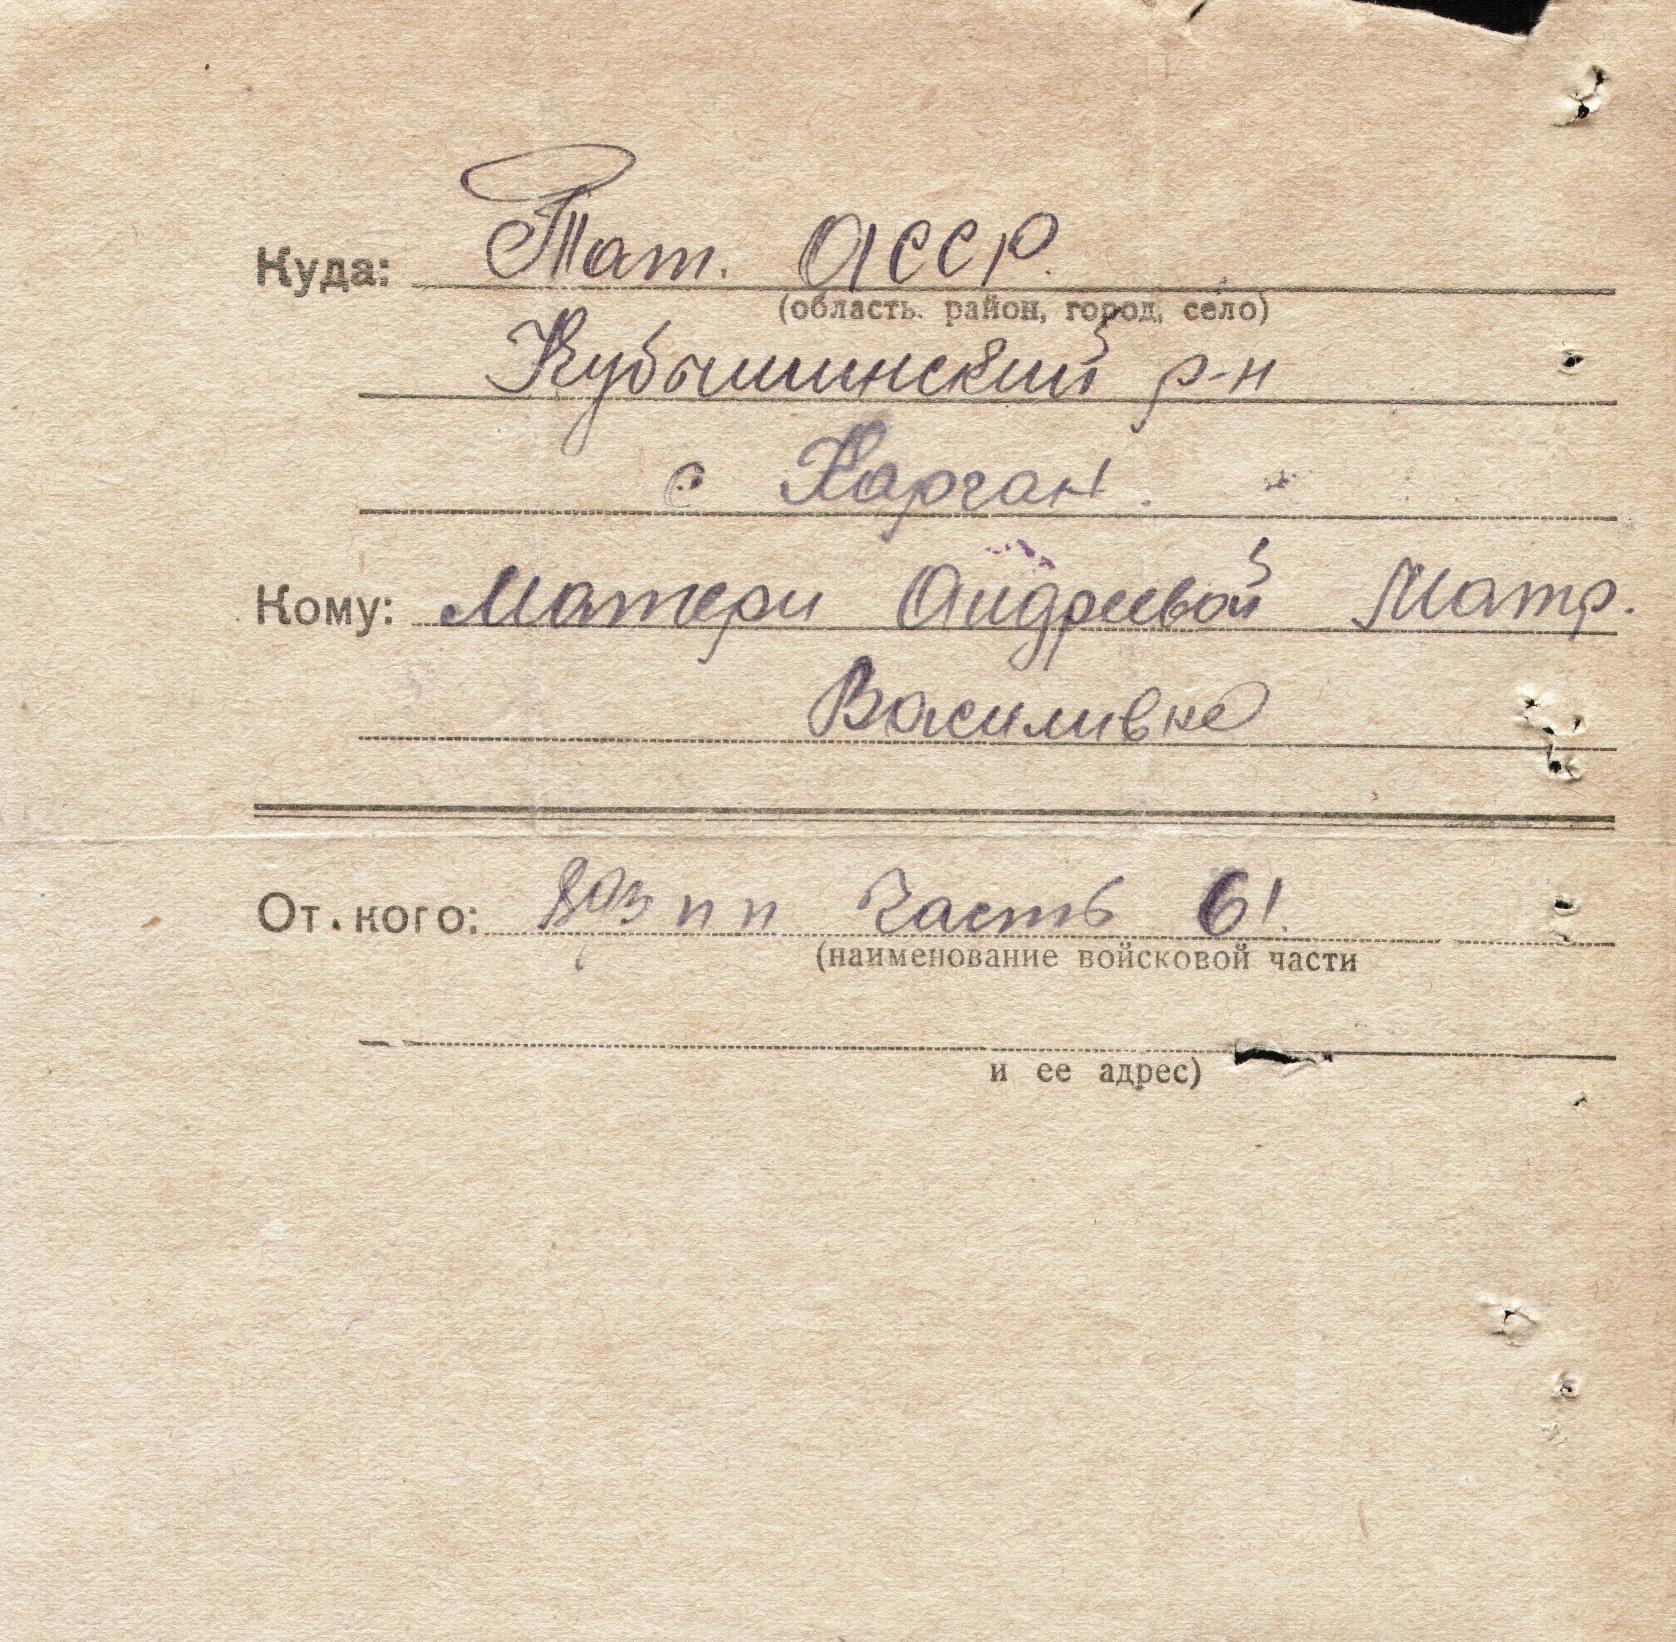 Куда: Тат. АССР.
(область. район, город, село)
Кубышинский р-н
с Карган.
Кому: Матери Андреевой Матр.
Василивне
От кого: пп Часть 61.
(наименование войсковой части
и ее адрес)